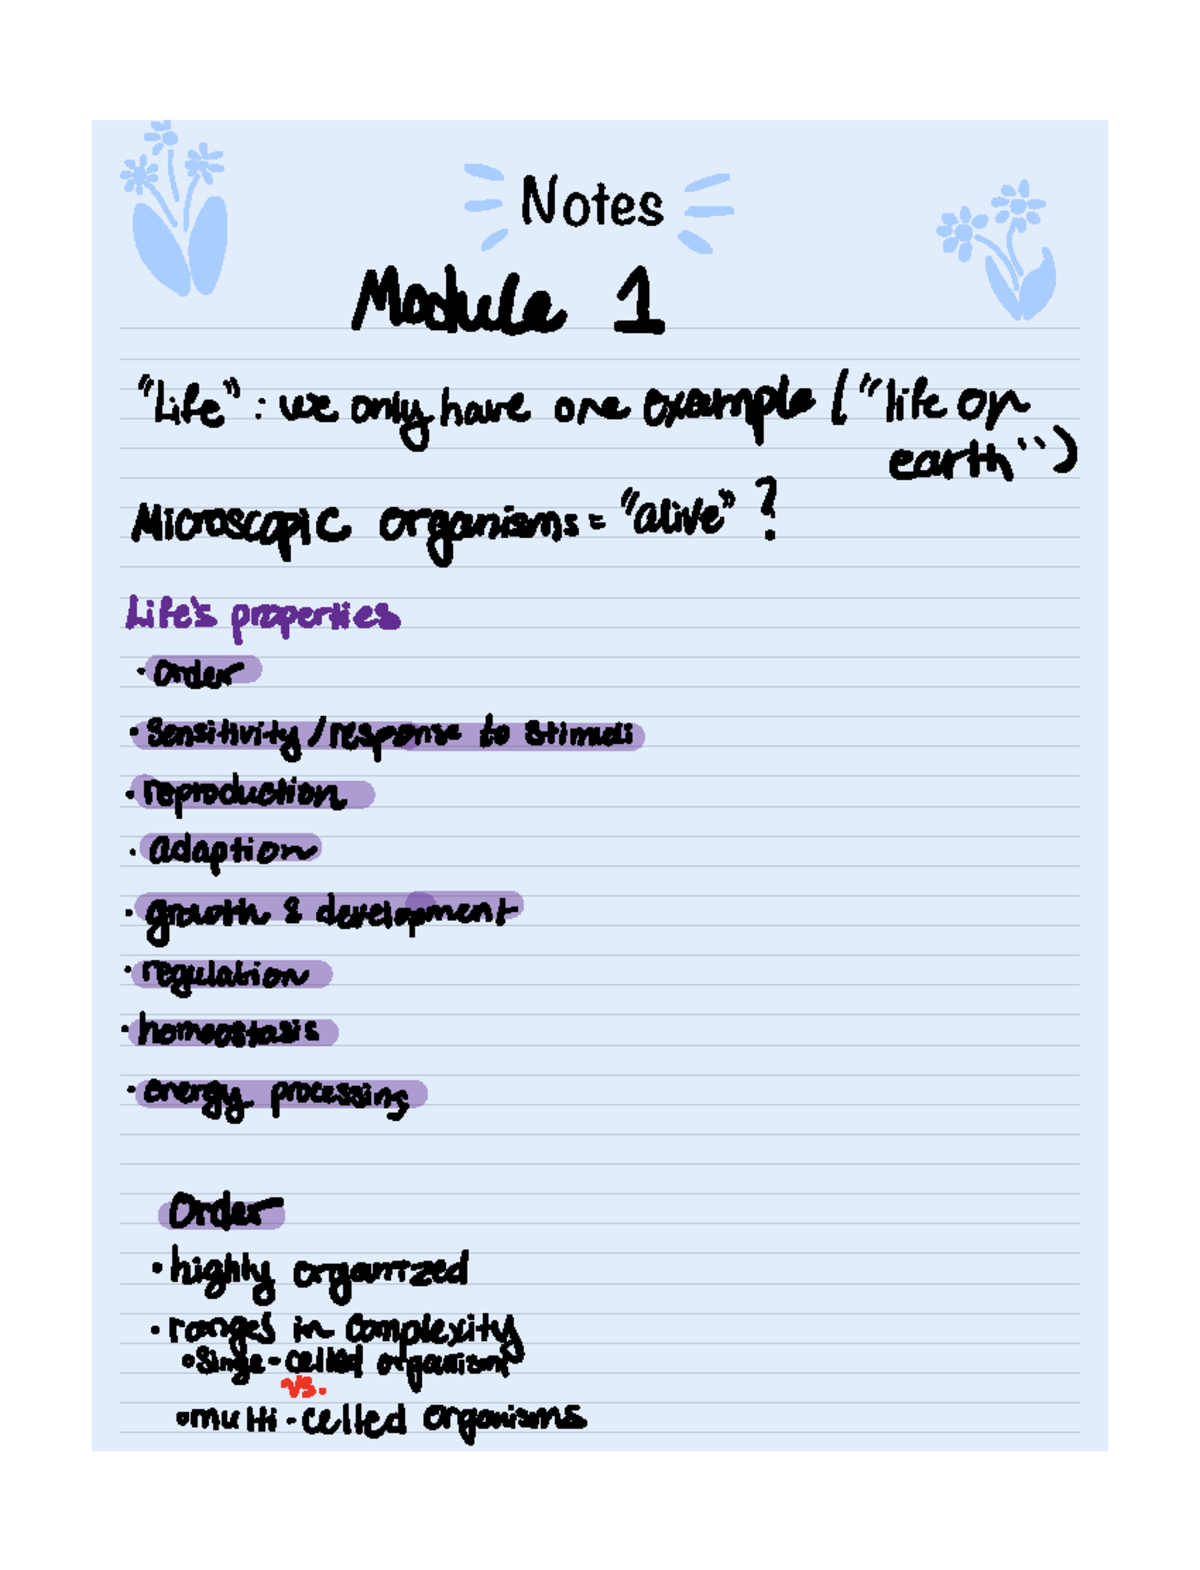 Notes
Module 1
"Life" : we only have one example ("life on
earth")
Microscopic organisms = "alive" ?
Life's properties
· order
· Sensitivity / response to stimuli
· reproduction
· adaption
· growth & development
· regulation
· homeostasis
· energy processing
Order
· highly organized
· ranges in complexity
◦ Single-celled organism
vs.
◦ multi-celled organisms